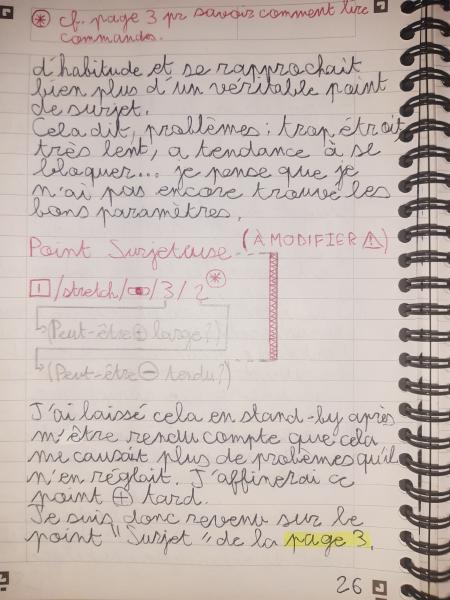 * cf. page 3 pr savoir comment lire
commandes.
d'habitude et se rapprochait
bien plus d'un véritable point
de surjet.
Cela dit, problèmes : trop étroit
très lent, a tendance à se
bloquer... je pense que je
n'ai pas encore trouvé les
bons paramètres.
Point Surjeteuse (À MODIFIER ⚠)
1/stretch/ /3/2*
(Peut-être + large?)
(Peut-être - tendu?)
J'ai laissé cela en stand-by après
m'être rendu compte que cela
me causait plus de problèmes qu'il
n'en réglait. J'affinerai ce
point + tard.
Je suis donc revenu sur le
point "Surjet" de la page 3.
26